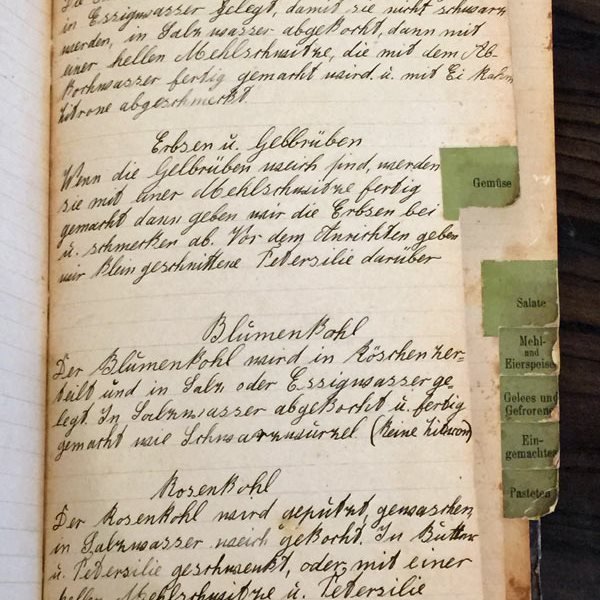 in Essigwasser gelegt, damit sie nicht schwarz
werden, in Salzwasser abgekocht, dann mit
einer hellen Mehlschwitze, die mit dem Ab-
kochwasser fertig gemacht wird u. mit Ei Rahm
Zitrone abgeschmeckt.
Erbsen u. Gelbrüben
Wenn die Gelbrüben weich sind, werden
sie mit einer Mehlschwitze fertig
gemacht dann geben wir die Erbsen bei
u. schmecken ab. Vor dem Anrichten geben
wir klein geschnittene Petersilie darüber
Blumenkohl
Der Blumenkohl wird in Röschen zer-
teilt und in Salz oder Essigwasser ge-
legt. In Salzwasser abgekocht u. fertig
gemacht wie Schwarzwurzel (keine Zitron)
Rosenkohl
Der Rosenkohl wird geputzt, gewaschen
in Salzwasser weich gekocht. In Butter
u. Petersilie geschwenkt, oder mit einer
hellen Mehlschwitze u. Petersilie
Gemüse
Salate
Mehl-
und
Eierspeise
Gelees und
Gefrorene
Ein-
gemachtes
Pasteten